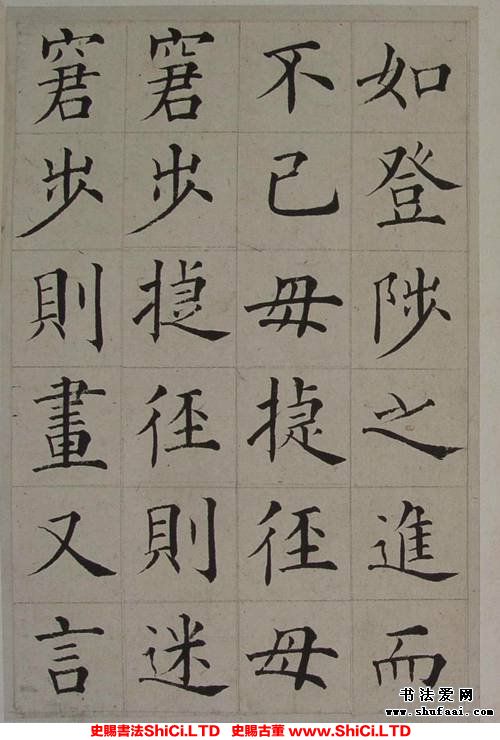 如登陟之進而
不已毋捷徑毋
窘步捷徑則迷
窘步則畫又言
书法爱网
www.shufaai.com
史賜書法ShiCi.LTD 史賜古董 www.ShiCi.LTD